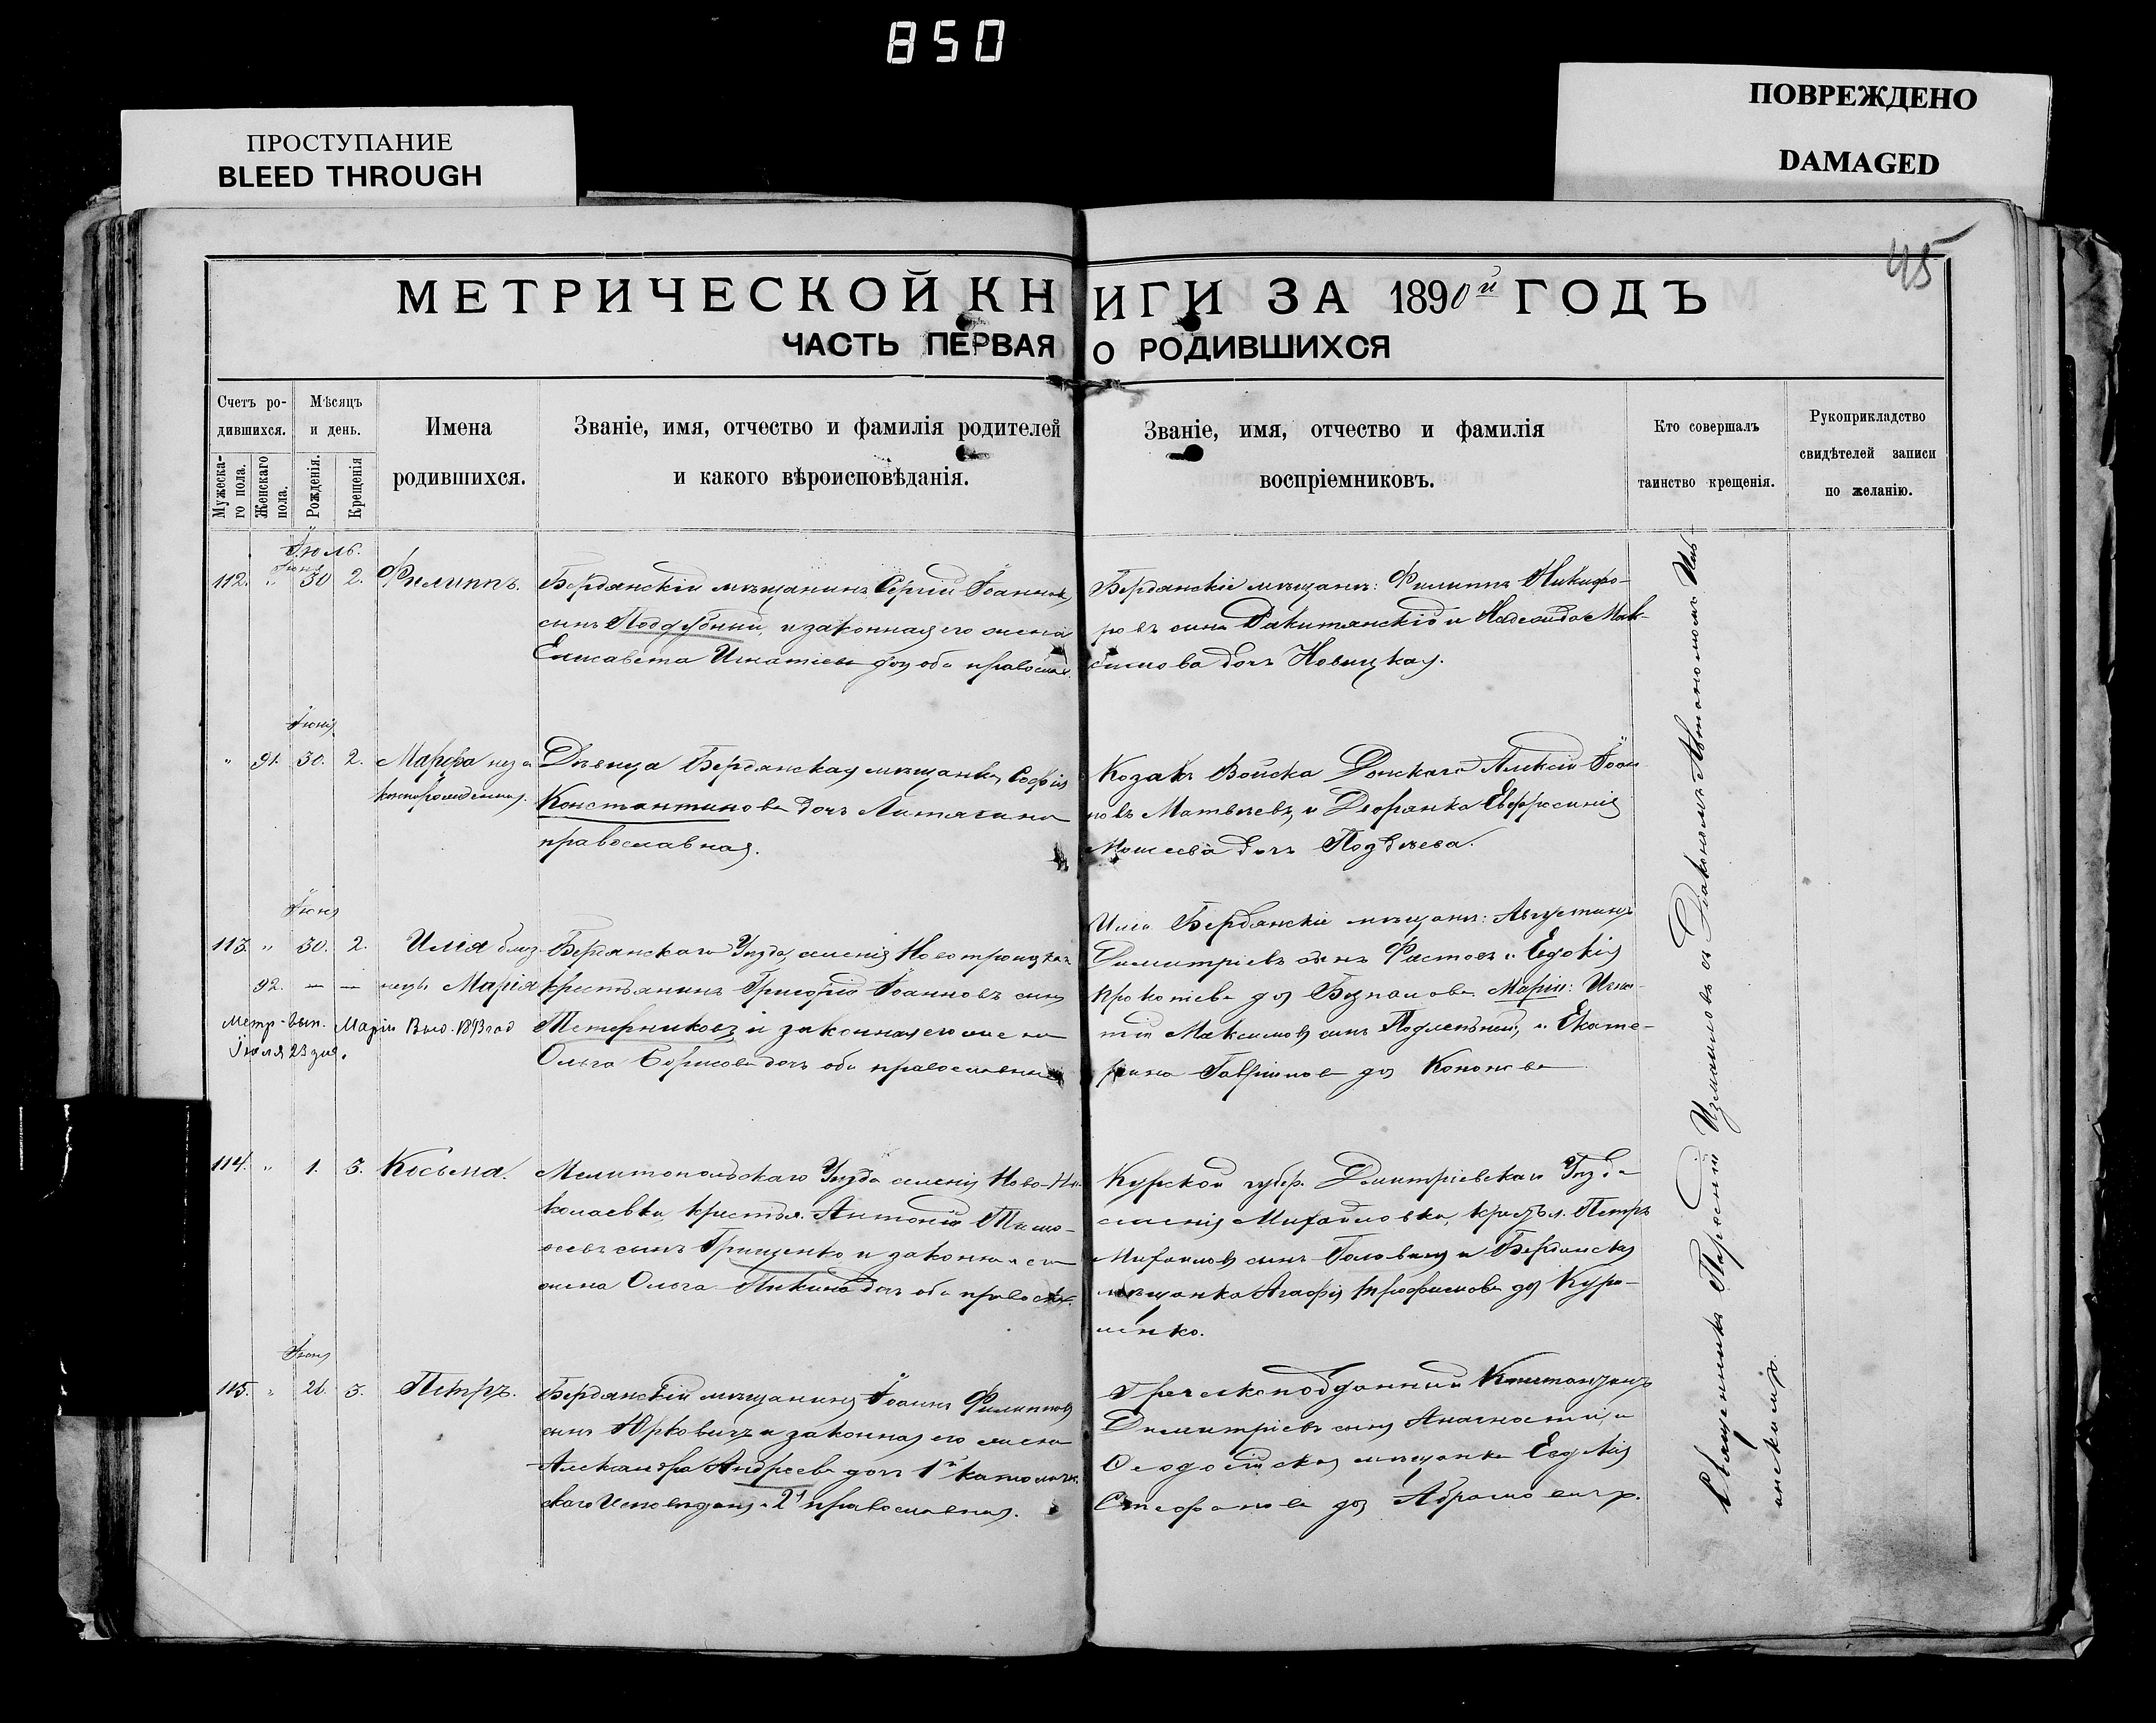 850
ПРОСТУПАНИЕ
BLEED THROUGH
ПОВРЕЖДЕНО
DAMAGED
45
МЕТРИЧЕСКОЙ КНИГИ ЗА 1890й ГОДЪ
ЧАСТЬ ПЕРВАЯ О РОДИВШИХСЯ
Счетъ ро-
дившихся.
Мужеска-
го пола.
Женскаго
пола.
Мѣсяцъ
и день.
Рожденія.
Крещенія
Имена
родившихся.
Званіе, имя, отчество и фамилія родителей
и какого вѣроисповѣданія.
Званіе, имя, отчество и фамилія
воспріемниковъ.
Кто совершалъ
таинство крещенія.
Рукоприкладство
свидѣтелей записи
по желанію.
Іюль.
Іюня
112. " 30 2. Филиппъ.
Бердянскій мѣщанинъ Сергій Іоанновъ
сынъ Поддубный, и законная его жена
Елисавета Игнатіева доч оба православ.
Бердянскіе мѣщане: Филиппъ Никифо-
ровъ сынъ Ракитянскій и Надежда Мак-
симова дочь Новицкая.
Іюня
" 91. 30. 2. Марѳа неза
коннорожденная.
Дѣвица Бердянская мѣщанка Софія
Константинова дочь
православная.
Козакъ Войска Донскаго Алексій Іоан
новъ Матвѣевъ и Дворянка Евфросинія
Моисеева дочь
Іюня
113. " 30. 2. Илія близ
92. — — нецы Марія
Метр. вып. Маріи Выд. 1893 год
Іюля 23 дня.
Бердянскаго Уѣзда, селенія Новотроицкаго
крестьянинъ Григорій Іоанновъ сынъ
и законная его жена
Ольга Борисова дочь оба православные
Иліи Бердянскіе мѣщане: Августинъ
Димитріевъ сынъ Фастовъ и Евдокія
Прокопіева доч Маріи: Игна-
тій Максимовъ сынъ и Екате-
рина Гавріилова доч Кононова
114. " 1. 3. Косьма.
Мелитопольскаго Уѣзда селенія Ново-Ни-
колаевки, крестья. Антоній Тимо-
ѳеевъ сынъ Грищенко и законная его
жена Ольга дочь оба правосла.
Курской губер. Димитріевскаго Уѣзда
селенія Михайловки, крестья. Петръ
Михаиловъ сынъ Головинъ и Бердянская
мѣщанка Агафія Трофимова доч Кури-
ленко.
Іюня
115. " 26. 3. Петръ.
Бердянскій мѣщанинъ Іоаннъ Филипповъ
сынъ Юрковичъ и законная его жена
Александра Андреева доч 1й католиче-
скаго Исповѣданія а 2я православная.
Греческоподданный Константинъ
Димитріевъ сынъ и
Ѳеодосійская мѣщанка Евдокія
Стефанова доч Абрамовичъ.
Священникъ Измаиловъ съ Діакономъ Автономомъ